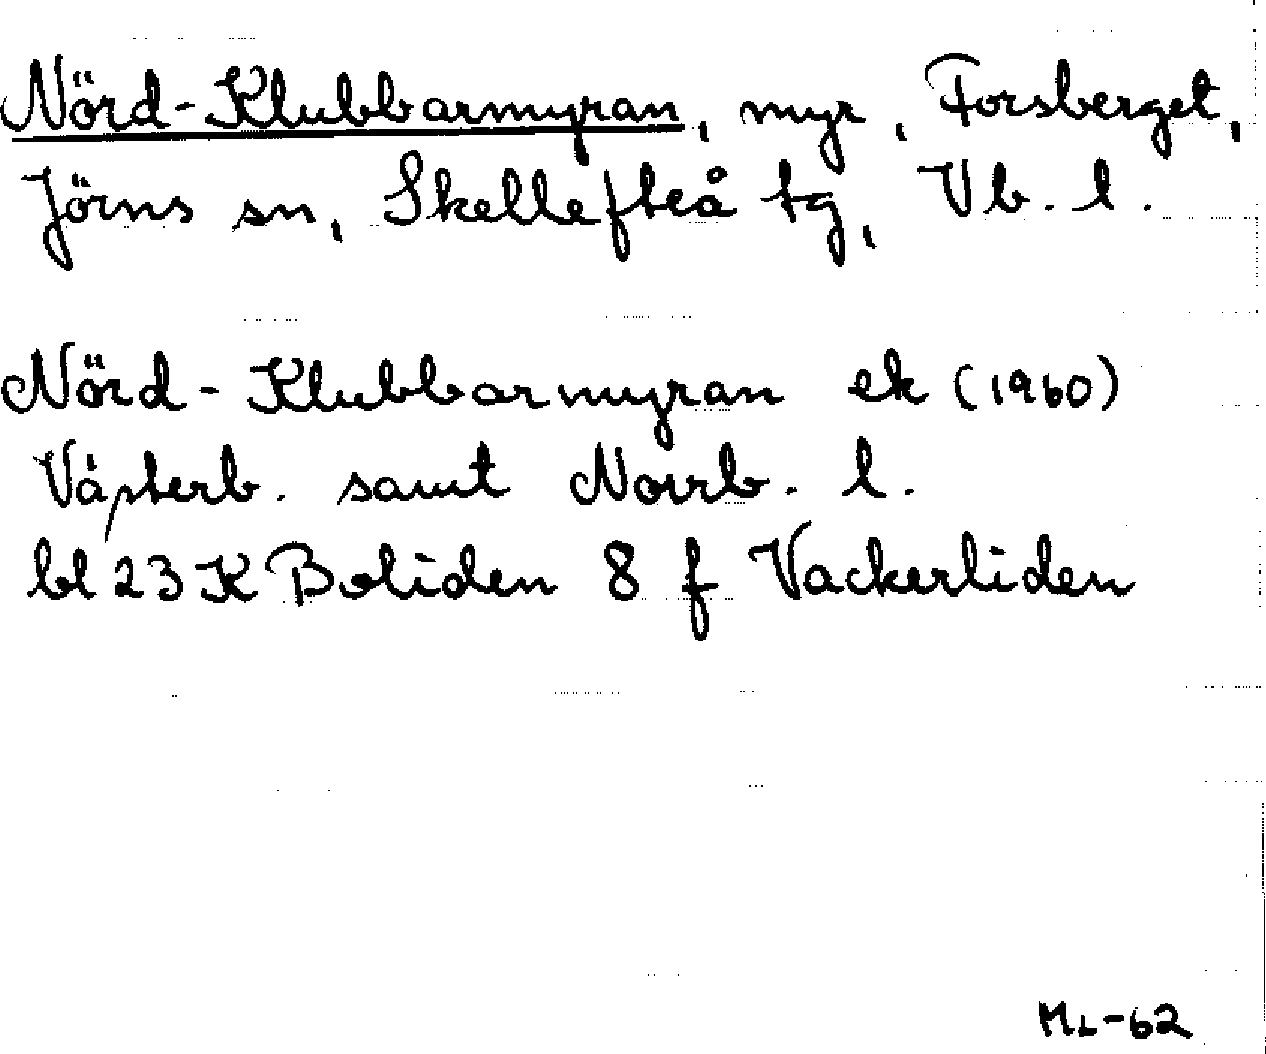 Nörd-Klubbarmyran, myr, Forsberget,
Jörns sn, Skellefteå tg, Vb. l.
Nörd-Klubbarmyran ek (1960)
Västerb. samt Norrb. l.
bl 23 K Boliden 8 f Vackerliden
ML-62